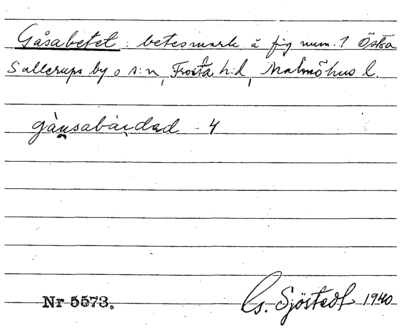 Gåsabetet : betesmark å fig num. 1 Östra
Sallerups by o s:n, Frosta h:d, Malmöhus l.
gåusabáidad 4
Nr 5573.
G. Sjöstedt 1940